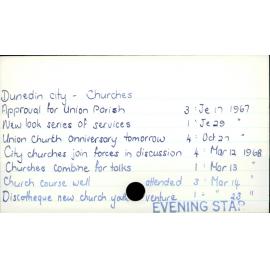 Dunedin city - Churches
Approval for Union Parish 3 : Je 17 1967
New look series of services 1 : Je 29 "
Union church anniversary tomorrow 4 : Oct 27 "
City churches join forces in discussion 4 : Mar 12 1968
Churches combine for talks 1 : Mar 13 "
Church course well attended 3 : Mar 14 "
Discotheque new church venture 1 - " 23 "
EVENING STAR